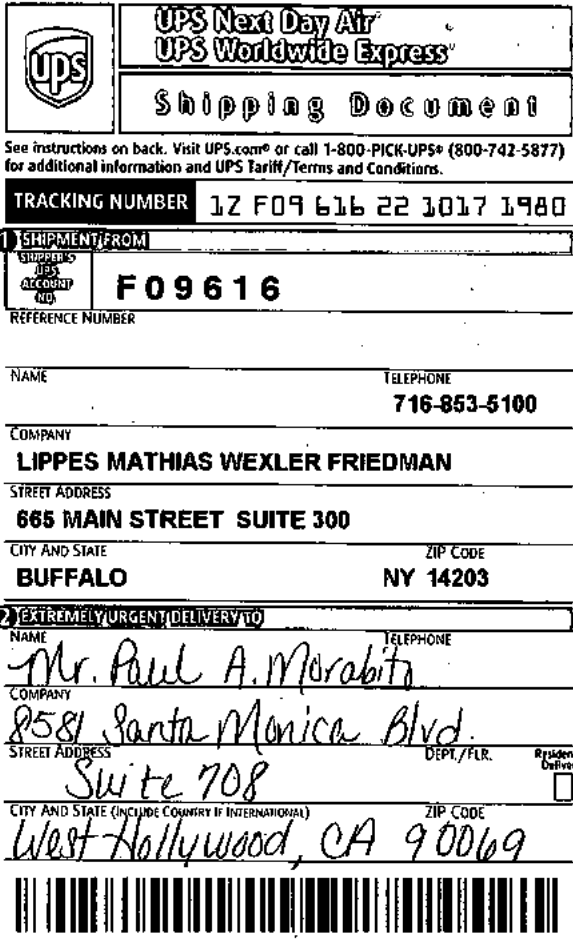 ups
UPS Next Day Air®
UPS Worldwide Express®
Shipping Document
See instructions on back. Visit UPS.com® or call 1-800-PICK-UPS® (800-742-5877)
for additional information and UPS Tariff/Terms and Conditions.
TRACKING NUMBER 1Z F09 616 22 1017 1980
1 SHIPMENT FROM
SHIPPER'S
UPS
ACCOUNT
NO.
F09616
REFERENCE NUMBER
NAME TELEPHONE
716-853-5100
COMPANY
LIPPES MATHIAS WEXLER FRIEDMAN
STREET ADDRESS
665 MAIN STREET SUITE 300
CITY AND STATE ZIP CODE
BUFFALO NY 14203
2 EXTREMELY URGENT DELIVERY TO
NAME TELEPHONE
Mr. Paul A. Morabito
COMPANY
8581 Santa Monica Blvd.
STREET ADDRESS DEPT./FLR. Residen
Deliver
Suite 708
CITY AND STATE (INCLUDE COUNTRY IF INTERNATIONAL) ZIP CODE
West Hollywood, CA 90069